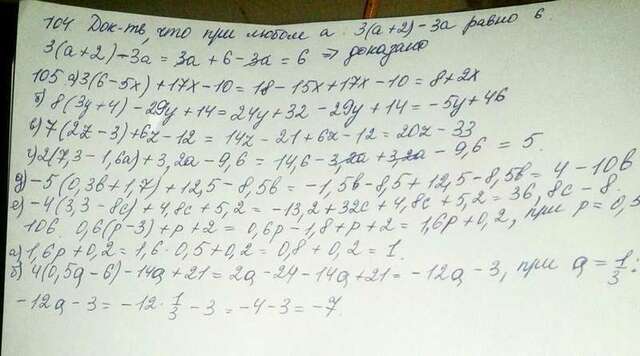 104. Док-ть, что при любом а 3(а+2)-3а равно 6.
3(а+2)-3а = 3а+6-3а = 6 ⇒ доказано
105 а) 3(6-5х)+17х-10 = 18-15х+17х-10 = 8+2х
б) 8(3у+4)-29у+14 = 24у+32-29у+14 = -5у+46
в) 7(2z-3)+6z-12 = 14z-21+6z-12 = 20z-33
г) 2(7,3-1,6а)+3,2а-9,6 = 14,6-3,2а+3,2а-9,6 = 5.
д) -5(0,3в+1,7)+12,5-8,5в = -1,5в-8,5+12,5-8,5в = 4-10в
е) -4(3,3-8с)+4,8с+5,2 = -13,2+32с+4,8с+5,2 = 36,8с-8.
106. 0,6(р-3)+р+2 = 0,6р-1,8+р+2 = 1,6р+0,2, при р=0,5
а) 1,6р+0,2 = 1,6·0,5+0,2 = 0,8+0,2 = 1.
б) 4(0,5q-6)-14q+21 = 2q-24-14q+21 = -12q-3, при q = 1/3:
-12q-3 = -12·1/3-3 = -4-3 = -7.